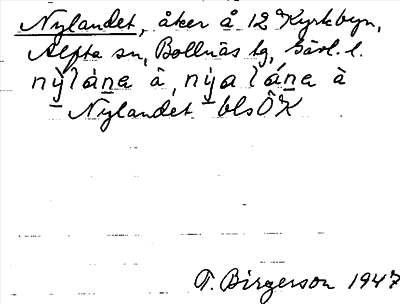 Nylandet, åker å 12 Kyrkbyn,
Alfta sn, Bollnäs tg, Gävl. l.
nỳláne à, nýa láne à
Nylandet bls ÖK
T. Birgerson 1947